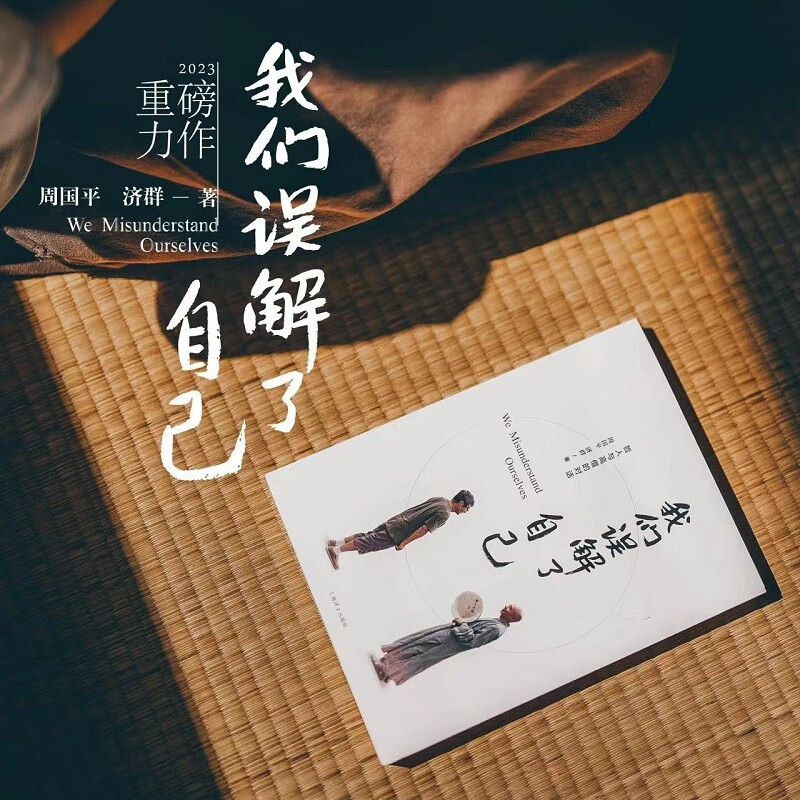 2023
重磅
力作
我们误解了
自己
周国平 济群 — 著
We Misunderstand
Ourselves
我们误解了
自己
周国平 济群 / 著
哲人与高僧的对话
We Misunderstand
Ourselves
上海译文出版社